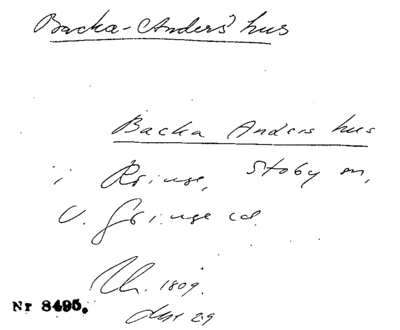 Backa-Anders' hus
Backa Anders hus
i Röinge, Stoby sn,
V. Göinge hd.
1809.
29
Nr 8495.